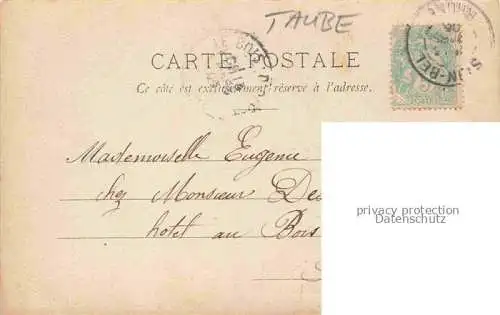 TAUBE
CARTE POSTALE
Ce côté est exclusivement réservé à l'adresse.
Mademoiselle Eugence
chez Monsieur De
hotel au Bois
privacy protection
Datenschutz